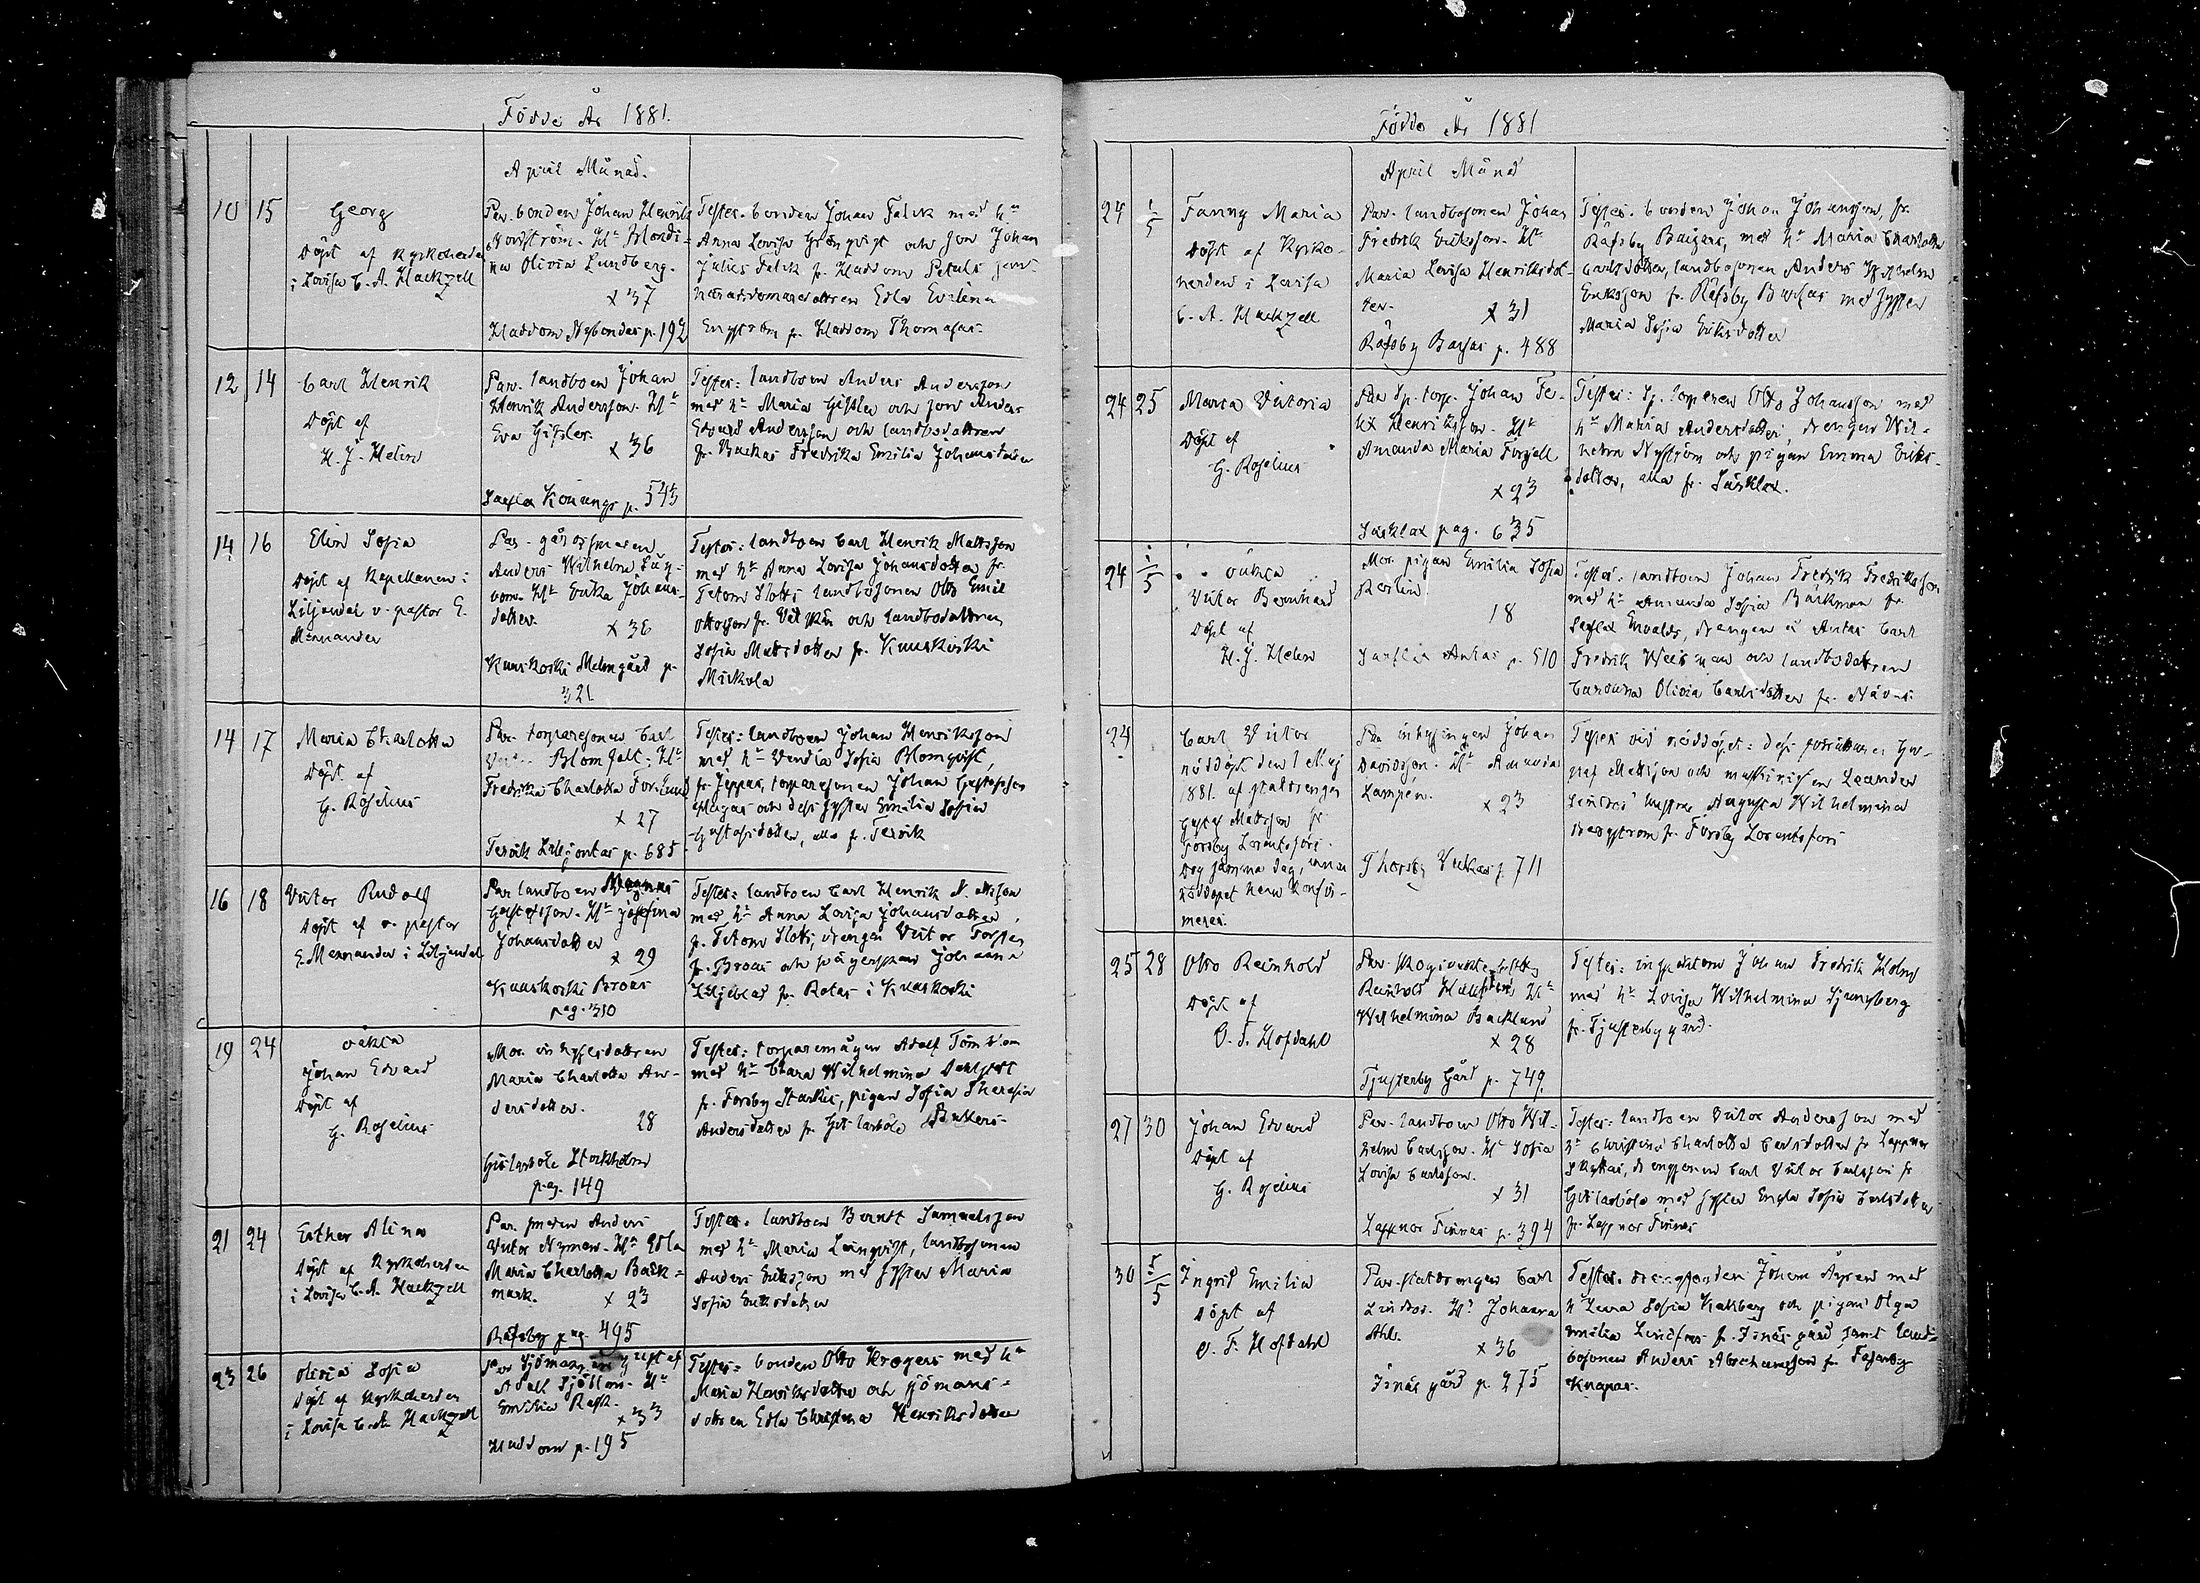 Födde År 1881.
April Månad.
10 15 Georg
Döpt af Kyrkoherden
i Lovisa C. A. Hackzell
Par. bonden Johan Henrik
Hu
Olivia Lundberg.
x 37
Haddom Nybondas p. 192
Testes. bonden Johan Falck med hu
Anna Lovisa Grönqvist och son Johan
Julius Falck fr. Haddom Petals jemte
häradsdomaredottren Edla Evelina
Engström fr. Haddom Thomasas.
12 14 Carl Henrik
Döpt af
H. J. Helin
Par. landboen Johan
Henrik Andersson. Hu
Eva Gissler.
x 36
Sarflax Konungs p. 543
Testes: landboen Anders Andersson
med hu Maria Gissler och son Anders
Edvard Andersson och landbodottren
fr. Backas Fredrika Emilia Johansdotter
14 16 Elin Sofia
Döpt af Kapellanen i
Liljendal v. pastor E.
Mennander
Par. gårdssmeden
Anders Wilhelm
Hu Erika Johans-
dotter.
x 36
Kuuskoski Malmgård p.
321
Testes: landboen Carl Henrik Mattsson
med hu Anna Lovisa Johansdotter fr.
Tetom Slotts landbosonen Otto Emil
Ottosson fr. och landbodottren
Sofia Mattsdotter fr. Kuuskoski
Mickola
14 17 Maria Charlotta
Döpt af
G. Roselius
Par. torparesonen Carl
Blomfelt. Hu
Fredrika Charlotta Forslund
x 27
Tervik Liljontas p. 685
Testes: landboen Johan Henriksson
med hu Vendla Sofia Blomqvist,
fr. Jeppas, torparesonen Johan Gustafsson
och dess syster Emilia Sofia
Gustafsdotter, alla fr. Tervik
16 18 Victor Rudolf
Döpt af v. pastor
E. Mennander i Liljendal
Par landboen Magnus
Gustafsson. Hu Josefina
Johansdotter
x 29
Kuuskoski Broas
pag. 310
Testes: landboen Carl Henrik Mattsson
med hu Anna Lovisa Johansdotter,
fr. Tetom Slotts, drengen Victor Forsten
fr. Broas och Johanna
Liljeblad fr. Rotas i Kuuskoski
19 24 oäkta
Johan Edvard
Döpt af
G. Roselius
Mor. inhysesdottren
Maria Charlotta An-
dersdotter.
28
Gislarböle Stockholm
pag. 149
Testes: torparemågen Adolf
med hu Clara Wilhelmina
fr. Forsby Starkis, pigan Sofia Theresia
Andersdotter fr. Gislarböle
21 24 Esther Alina
Döpt af Kyrkoherden
i Lovisa C. A. Hackzell
Par. smeden Anders
Victor Nyman. Hu Edla
Maria Charlotta Back-
mark.
x 23
Räfsby pag. 495
Testes. landboen Berndt Samuelsson
med hu Maria Lönnqvist, landbosonen
Anders Eriksson med syster Maria
Sofia Eriksdotter
23 26 Olivia Sofia
Döpt af Kyrkoherden
i Lovisa C. A. Hackzell
Par Sjömannen Gustaf
Adolf Hu
Emilia Rask.
x 33
Haddom p. 195
Testes: bonden Otto Krogers med hu
Maria Henriksdotter och sjömans-
dottren Edla Christina Henriksdotter
Födde År 1881
April Månad
24 1/5 Fanny Maria
Döpt af Kyrko-
herden i Lovisa
C. A. Hackzell
Par. landbosonen Johan
Fredrik Eriksson. Hu
Maria Lovisa Henriksdot-
ter.
x 31
Räfsby p. 488
Testes. bonden Johan Johansson, fr.
Räfsby med hu Maria Charlotta
Carlsdotter, landbosonen Anders Wilhelm
Eriksson fr. Räfsby med syster
Maria Sofia Eriksdotter
24 25 Maria Victoria
Döpt af
G. Roselius
Par Sp. torp. Johan Fe-
lix Henriksson. Hu
Amanda Maria Forssell
x 23
Särklax pag. 635
Testes: Sp. torparen Otto Johansson med
hu Maria Andersdotter, drengen Wil-
helm Nyström och pigan Emma Eriks-
dotter, alla fr. Särklax.
24 1/5 oäkta
Victor Bernhard
Döpt af
H. J. Helin
Mor. pigan Emilia Sofia
18
Sarflax Antas p. 510
Testes: landboen Johan Fredrik Fredriksson
med hu Amanda Sofia Bäckman fr.
Sarflax Envalds, drengen å Antas Carl
Fredrik och landbodottren
Carolina Olivia Carlsdotter fr.
24 Carl Victor
nöddöpt den 1 Maj
1881. af statdrengen
Gustaf Mattsson fr
Forsby Lorentsfors.
Dog samma dag, innan
nöddopet hann konfir-
meras.
Par inhysingen Johan
Davidsson. Hu Amanda
Lampén.
x 23
Thorsby p. 711
Testes vid nöddopet: Gu-
staf Mattsson och Leander
hustru Augusta Wilhelmina
Bergström fr. Forsby Lorentsfors
25 28 Otto Reinhold
Döpt af
O. F. Hofdahl
Par. Skogvakten Otto
Reinhold Hu
Wilhelmina Backlund
x 28
Tjusterby Gård p. 749.
Testes: inspektorn Johan Fredrik Holm
med hu Lovisa Wilhelmina Ljungberg
fr. Tjusterby gård.
27 30 Johan Edvard
Döpt af
G. Roselius
Par. landboen Otto Wil-
helm Carlsson. Hu Sofia
Lovisa Carlsson.
x 31
Lappnor Finnas p. 394
Testes: landboen Victor Andersson med
hu Christina Charlotta Carlsdotter fr Lappnor
Carl Victor Carlsson fr
Gislarböle med syster Engla Sofia Carlsdotter
fr. Lappnor Finnas
30 5/5 Ingrid Emilia
Döpt af
O. F. Hofdahl
Par. statdrengen Carl
Lindros. Hu Johanna
Ahl.
x 36
gård p. 275
Testes. Johan med
hu Lena Sofia och pigan Olga
Emilia Lindfors fr. gård samt land-
bosonen Anders Abrahamsson fr. Fasarby
Knapas.